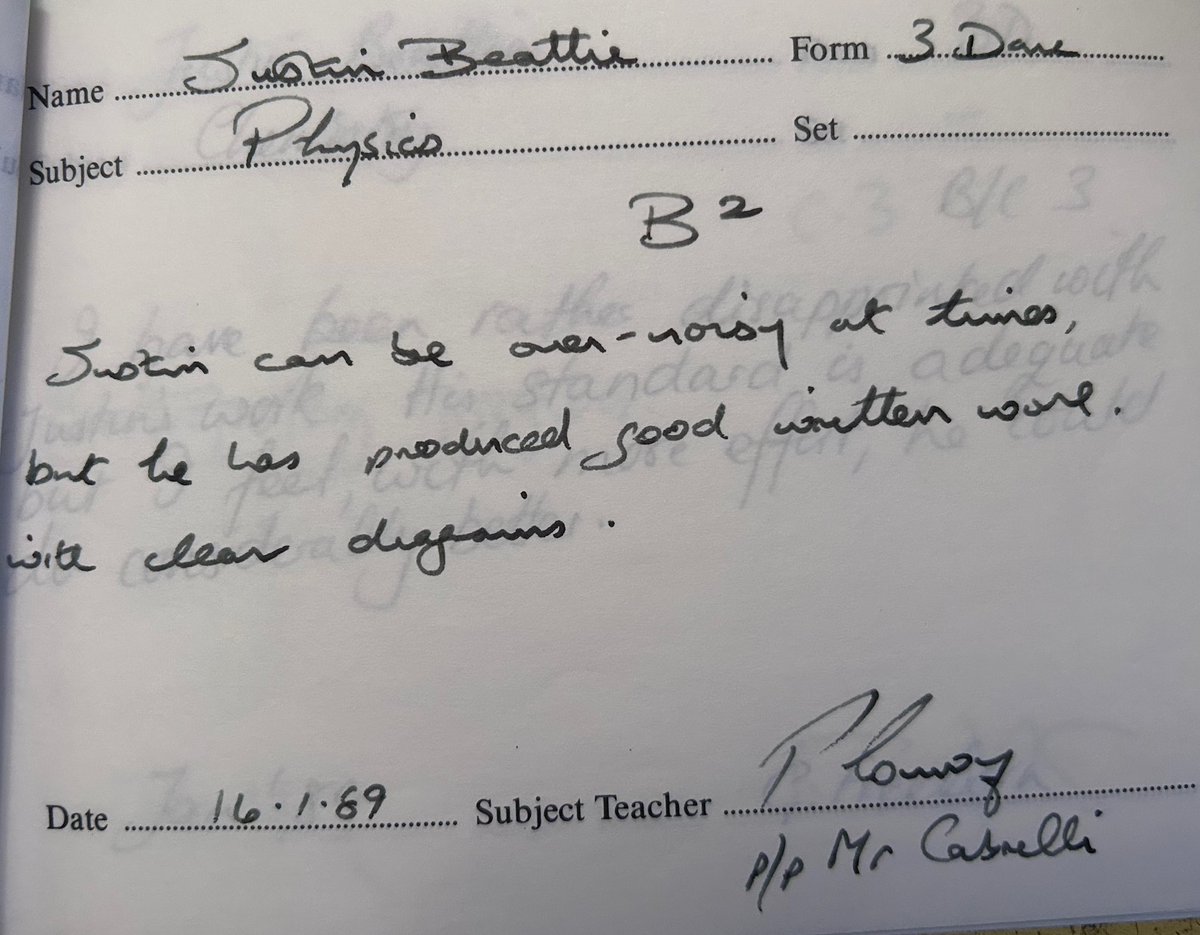 Name Justin Beattie Form 3 Dane
Subject Physics Set
B 2
Justin can be over-noisy at times,
but he has produced good written work.
with clear diagrams.
Date 16.1.89 Subject Teacher P Conway
p/p Mr Cabrelli